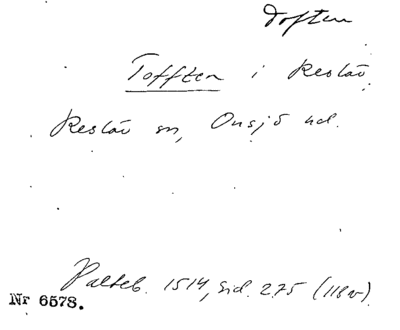 Toften
Tofften i Reslöv,
Reslöv sn, Onsjö hd.
Palteb. 1514, sid. 275 (118v).
Nr 6578.